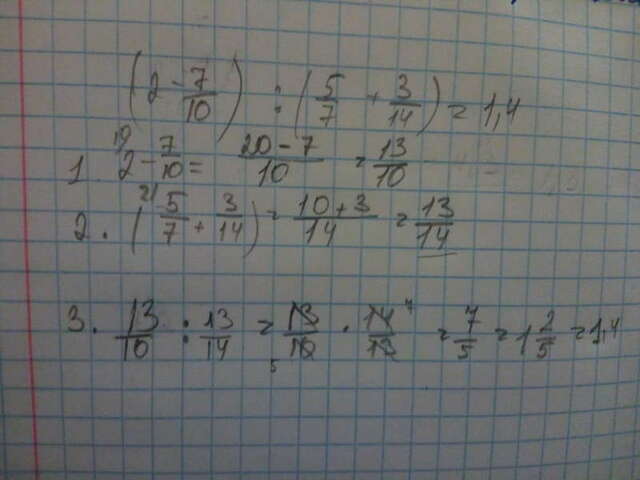 (2 - 7/10) : (5/7 + 3/14) = 1,4
1. 2 - 7/10 = (20 - 7)/10 = 13/10
2. (5/7 + 3/14) = (10 + 3)/14 = 13/14
3. 13/10 : 13/14 = 13/10 · 14/13 = 7/5 = 1 2/5 = 1,4